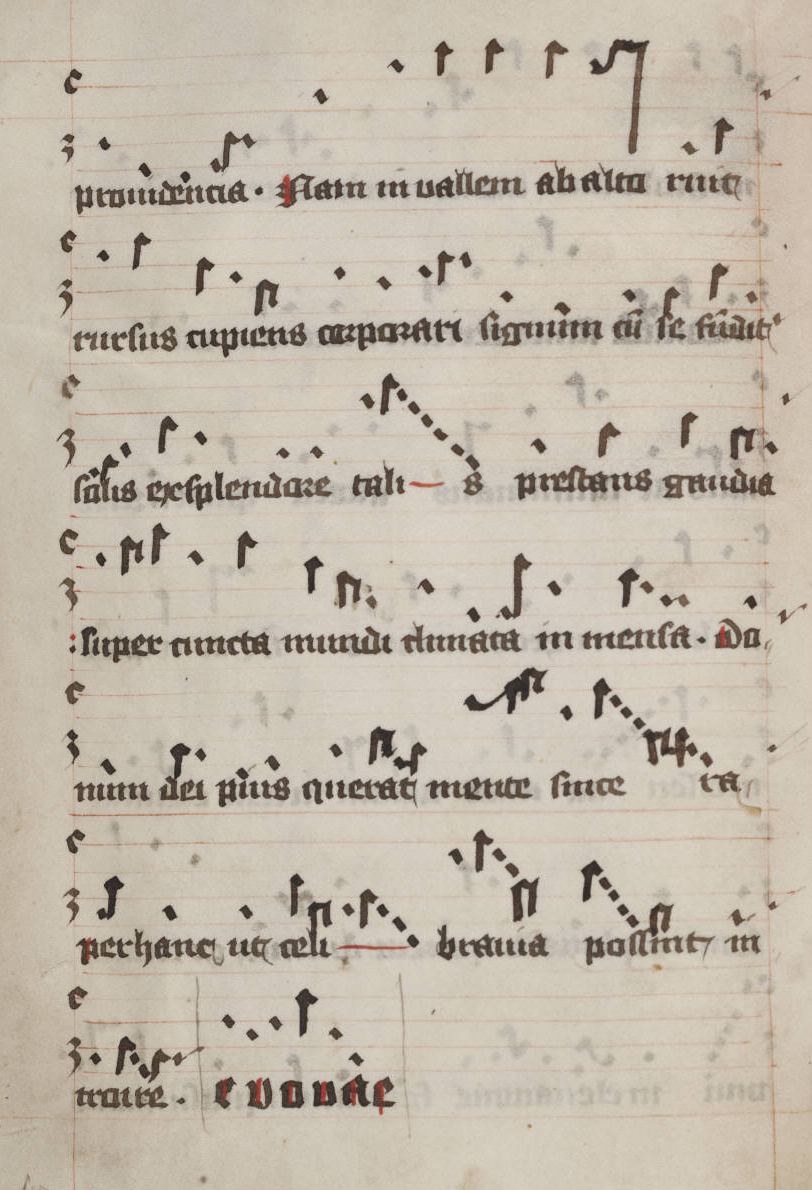 prouidencia. Nam in uallem ab alto ruit
rursus cupiens corporari signum cū se fūdit
solis exsplendore tali s prestans gaudia
super cuncta mundi climata in mensa. Do
num dei prius querat mente since ra
per hanc ut celi brauia possint in
troire. E V O V A E